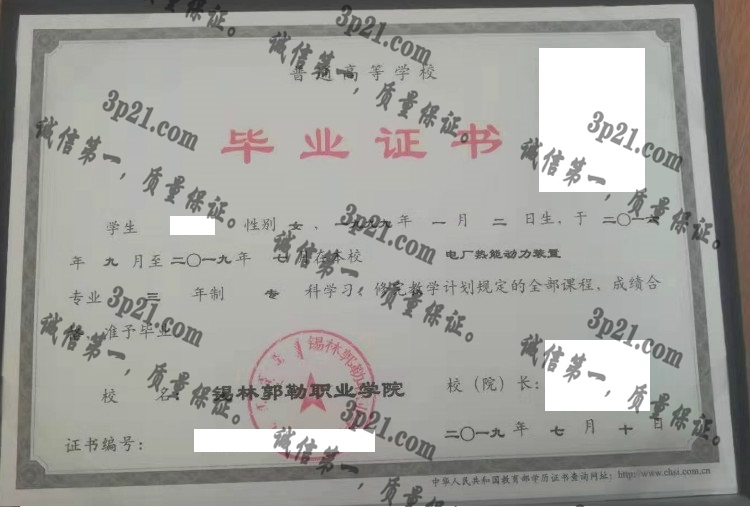 普通高等学校
毕业证书
学生 性别 女，一九九九年 一 月 二 日生，于 二〇一六
年 九 月至 二〇一九 年 七 月在本校 电厂热能动力装置
专业 三 年制 专 科学习，修完教学计划规定的全部课程，成绩合
格，准予毕业。
校 名：锡林郭勒职业学院
校（院）长：
证书编号：
二〇一九 年 七 月 十 日
中华人民共和国教育部学历证书查询网址：http://www.chsi.com.cn
锡林郭勒
3p21.com
诚信第一，质量保证。
3p21.com
诚信第一，质量保证。
3p21.com
诚信第一，质量保证。
3p21.com
诚信第一，质量保证。
3p21.com
诚信第一，质量保证。
3p21.com
诚信第一，质量保证。
3p21.com
诚信第一，质量保证。
3p21.com
诚信第一，质量
质量保证。